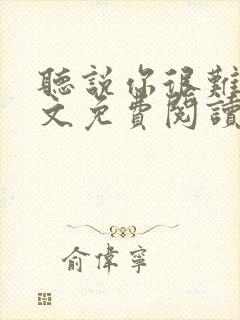 聽說你很難
文免費閱讀
俞偉寧